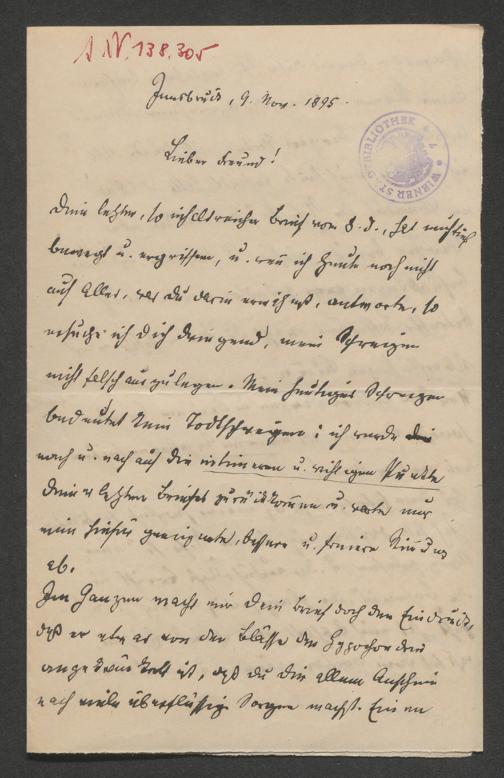 I.N. 138.305
WIENER ST. BIBLIOTHEK
Innsbruck, 9. Nov. 1895.
Lieber Freund!
Dein letzter, so inhaltreicher Brief vom 8. d., hat mich tief
bewegt u. ergriffen, u. wenn ich heute noch nicht
auf Alles, was du darin erwähnst, antworte, so
ersuche ich dich dringend, mein Schweigen
nicht falsch auszulegen. Mein heutiges Schweigen
bedeutet kein Todtschweigen; ich werde
nach u. nach auf die intimeren u. wichtigen Punkte
deines letzten Briefes zurückkommen u. warte nur
eine hiefür geeignete, bessere u. freiere Stunde
ab.
Im Ganzen macht mir dein Brief doch den Eindruck,
daß er etwas von der Blässe der Hypochondrie
angekränkelt ist, daß du dir allem Anschein
nach viele überflüssige Sorgen machst. Einen